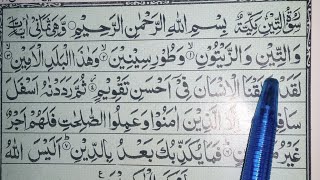 سُوْرَةُ التِّيْنِ مَكِّيَّةٌ بِسْمِ اللهِ الرَّحْمٰنِ الرَّحِيْمِ وَهِيَ ثَمَانِي اٰيَاتٍ
وَالتِّيْنِ وَالزَّيْتُوْنِ وَطُوْرِ سِيْنِيْنَ وَهٰذَا الْبَلَدِ الْاَمِيْنِ
لَقَدْ خَلَقْنَا الْاِنْسَانَ فِيْٓ اَحْسَنِ تَقْوِيْمٍ ثُمَّ رَدَدْنٰهُ اَسْفَلَ
الَّذِيْنَ اٰمَنُوْا وَعَمِلُوا الصّٰلِحٰتِ فَلَهُمْ اَجْرٌ
غَيْرُ فَمَا يُكَذِّبُكَ بَعْدُ بِالدِّيْنِ اَلَيْسَ اللهُ